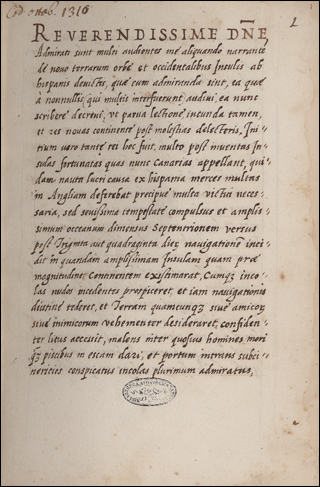 Cod. ottob. 1316
1
REVERENDISSIME DNE
Admirati sunt multi audientes me aliquando narrante
de nouo terrarum orbe et occidentalibus Insulis ab
hispanis deuictis, quæ cum admiranda sint, ea quæ
a nonnullis qui multis interfuerunt, audiui, ea nunc
scribere decreui, ut parua lectione, iucunda tamen,
et res nouas continente post molestias delecteris, Ini,
tium uero tante rei hoc fuit, multo post inuentas In,
sulas fortunatas quas nunc Canarias appellant, qui,
dam nauta lucri causa ex hispania merces multas
in Angliam deferebat precipue multa victui neces,
saria, sed seuissima tempestate compulsus et amplis,
simum occeanum dimensus Septentrionem versus
post Triginta aut quadraginta dies nauigatione inci,
dit in quandam amplissimam Insulam quam præ
magnitudine Continentem existimarat, Cumqz inco,
las nudos incedentes prospiceret, et iam nauigationis
diutine tederet, et Terram quamcunqz siue amicorz
siue inimicorum vehementer desideraret, confiden,
ter litus accessit, malens inter quosuis homines mori
qz piscibus in escam dari, et portum intrans
conspicatus incolas plurimum admiratus,